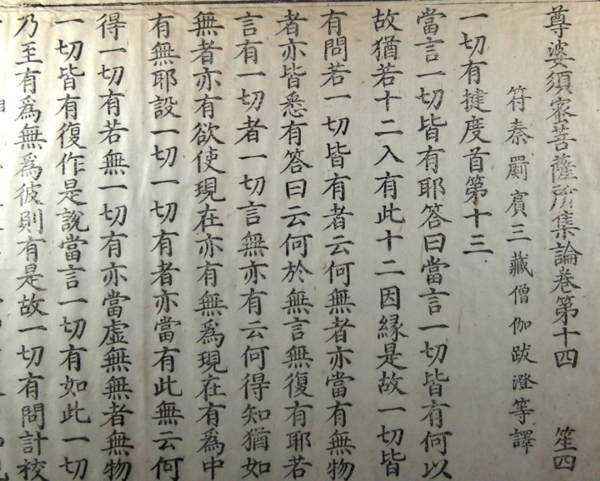 尊婆須蜜菩薩所集論卷第十四 笙四
符秦罽賓三藏僧伽跋澄等譯
一切有揵度首第十三
當言一切皆有耶答曰當言一切皆有何以
故猶若十二入有此十二因緣是故一切皆
有問若一切皆有者云何無者亦當有無物
者亦皆悉有答曰云何於無言無復有耶若
言有一切者一切言無亦有云何得知猶如
無者亦有欲使現在亦有無為現在有為中
有無耶設一切一切有者亦當有此無云何
得一切有若無一切有亦當虛無無者無物
一切皆有復作是說當言一切有如此一切
乃至有為無為彼則有是故一切有問計校